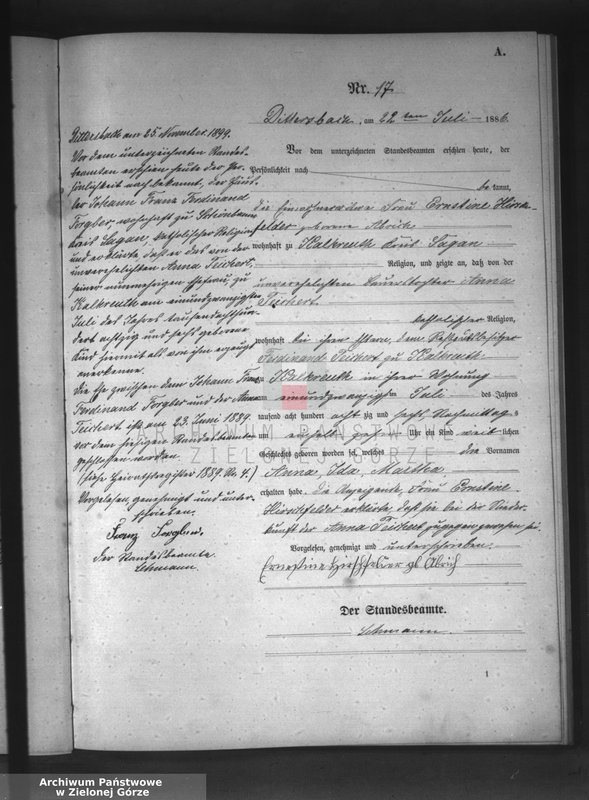 A.
Nr. 17
Dittersbach, am 22 ten Juli 1886.
Vor dem unterzeichneten Standesbeamten erschien heute, der
Persönlichkeit nach
bekannt,
die Einwohnerwitwe Frau Ernstine Hirsch-
felder geborene Abrich
wohnhaft zu Kalkreuth Kreis Sagan
Religion, und zeigte an, daß von der
unverehelichten Bauerstochter Anna
Teichert
katholischer Religion,
wohnhaft bei ihren Eltern, dem Restgutsbesitzer
Ferdinand Teichert zu Kalkreuth
zu Kalkreuth in ihrer Wohnung
am einundzwanzigsten Juli des Jahres
tausend acht hundert achtzig und sechs Nachmittags
um Uhr ein Kind weiblichen
Geschlechts geboren worden sei, welches die Vornamen
Anna, Ida, Martha
erhalten habe. Die Anzeigende, Frau Ernstine
Hirschfelder erklärte, daß sie bei der Nieder-
kunft der Anna Teichert zugegen gewesen sei.
Vorgelesen, genehmigt und unterschrieben:
Ernestine Hirschfelder gb Abrich
Der Standesbeamte.
Lehmann.
1
Dittersbach am 25. November 1899.
Vor dem unterzeichneten Standes-
beamten erschien heute der Per-
sönlichkeit nach bekannt, der
Johann Franz Ferdinand
Forgber, wohnhaft zu
Kreis Sagan, katholischer Religion
und erklärte, daß er das von der
unverehelichten Anna Teichert,
seiner nunmehrigen Ehefrau, zu
Kalkreuth am einundzwanzigsten
Juli des Jahres tausendachthun-
dert achtzig und sechs geborene
Kind hiermit als von ihm erzeugt
anerkenne.
Die Ehe zwischen dem Johann Franz
Ferdinand Forgber und der Anna
Teichert ist am 23. Juni 1889
vor dem hiesigen Standesbeamten
geschlossen worden.
(siehe Heirathsregister 1889. Nr. 4.)
Vorgelesen, genehmigt und unter-
schrieben.
Franz Forgber.
Der Standesbeamte
Lehmann.
ARCHIWUM PAŃSTWOWE
ZIELONA GÓRZE
Archiwum Państwowe
w Zielonej Górze